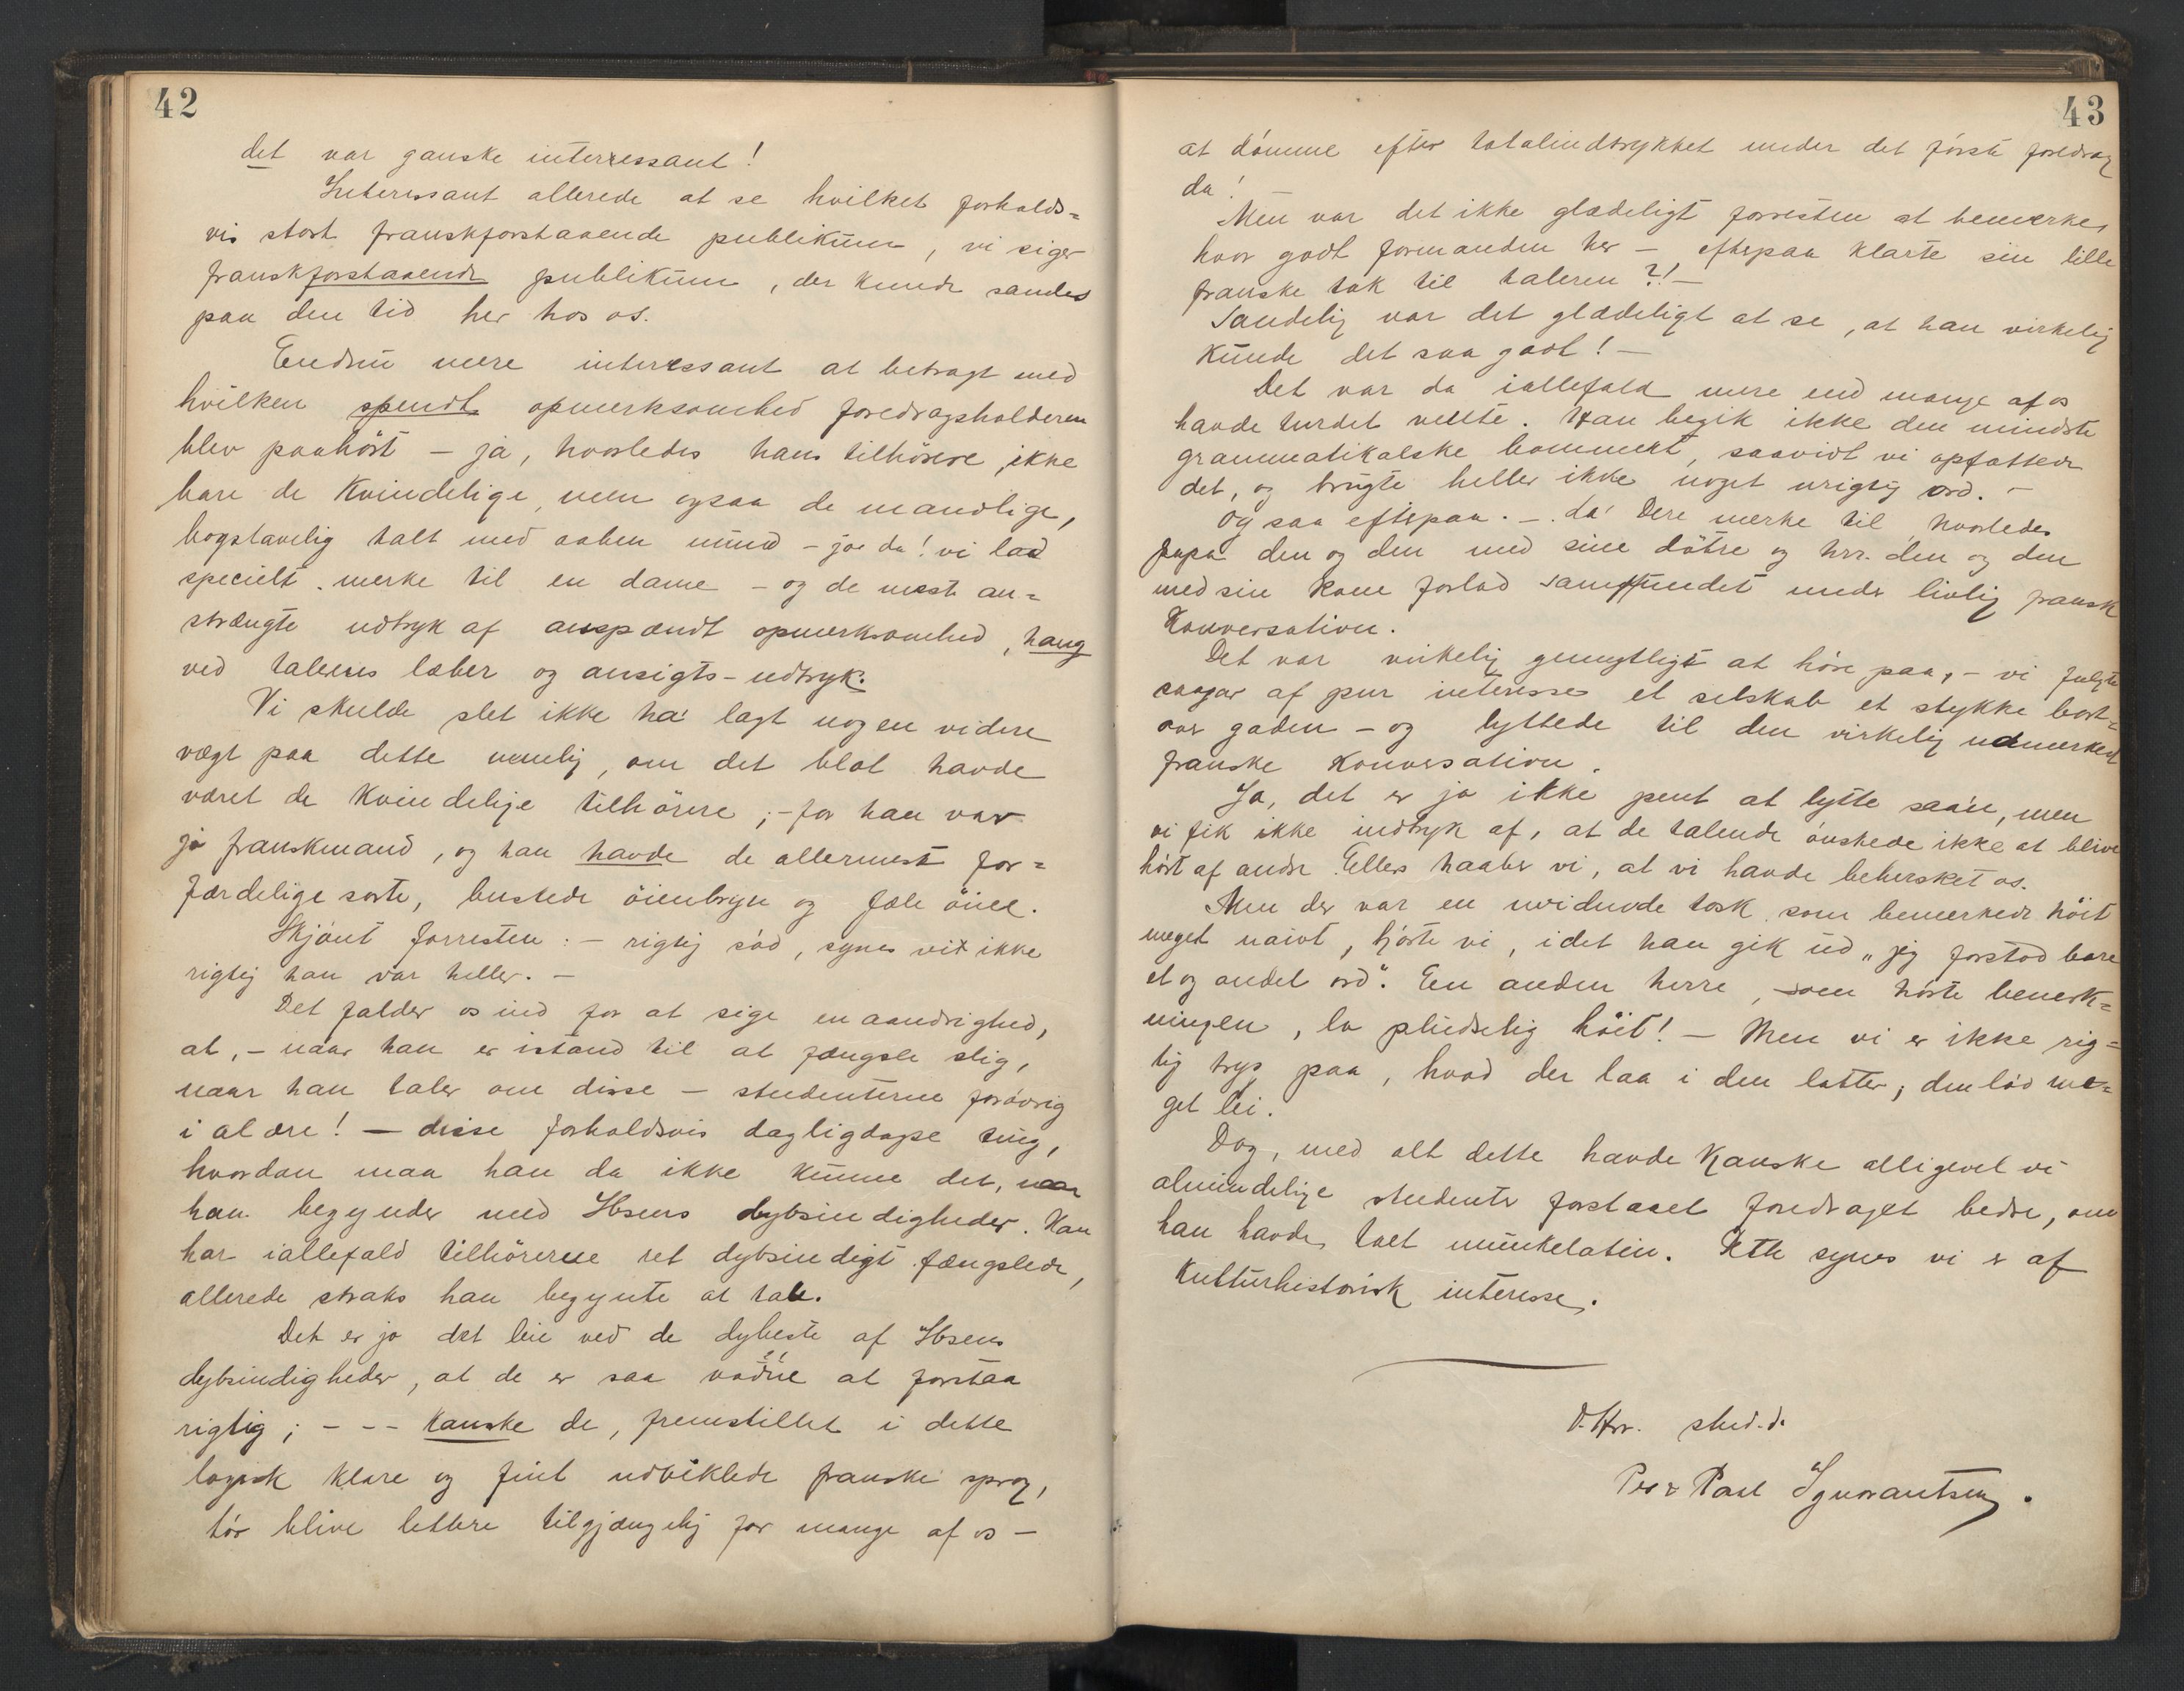 42
det var ganske interressant!
Interessant allerede at se hvilket forholds=
vis stort franskforstaaende publikum, vi siger
franskforstaaende publikum, der kunde samles
paa den tid her hos os.
Endnu mere interessant at betragt med
hvilken spendt opmerksomhed foredragsholderen
blev paahört – ja, hvorledes hans tilhörere, ikke
bare de kvindelige, men ogsaa de mandlige,
bogstavelig talt med aaben mund – jo da! vi lad
specielt merke til en dame – og de mest an=
strængte udtryk af anspændt opmerksomhed, hang
ved talerens læber og ansigts-udtryk.
Vi skulde slet ikke ha' lagt nogen videre
vægt paa dette nemlig, om det blot havde
været de kvindelige tilhörere; – for han var
jo franskmand, og han havde de allermest for=
færdelige sorte, buskede öienbryn og fæle öine.
Skjönt forresten: – rigtig söd, synes vi ikke
rigtig han var heller. –
Det falder os ind for at sige en aandrighed,
at, – naar han er istand til at fængsle slig,
naar han taler om disse – studenterne forövrig
i al ære! – disse forholdsvis dagligdagse ting,
hvordan maa han da ikke kunne det, naar
han begynder med Ibsens dybsindigheder. Han
har iallefald tilhörerne ret dybsindigt fængslede,
allerede straks han begynte at tale.
Det er jo det leie ved de dybeste af Ibsens
dybsindigheder, at de er saa at forstaa
rigtig; – – – kanske de, fremstillet i dette
logisk klare og fint udviklede franske sprog,
tör blive lettere tilgjængelig for mange af os –
43
at dömme efter totalindtrykket under det förste foredrag
da!
Men var det ikke glædeligt forresten at bemerke,
hvor godt formanden her – efterpaa klarte sin lille
franske tak til taleren?! –
Sandelig var det glædeligt at se, at han virkelig
kunde det saa godt! –
Det var da iallefald mere end mange af os
havde turdet vente. Han begik ikke den mindste
grammatikalske bommert, saavidt vi opfattede
det, og brugte heller ikke noget urigtig ord. –
Og saa efterpaa. – La' Dere merke til, hvorledes
papa den og den med sine dötre og hrr. den og den
med sin kone forlod samfundet under livlig fransk
konversation.
Det var virkelig gemytligt at höre paa, – vi fulgte
saagar af pur interesse et selskab et stykke bort=
over gaden – og lyttede til den virkelig udmerket
franske konversation.
Ja, det er jo ikke pent at lytte saa'n, men
vi fik ikke indtryk af, at de talende önskede ikke at blive
hört af andre. Ellers haaber vi, at vi havde behersket os.
Men der var en uvidende tosk som bemerkede höit
meget naivt, hörte vi, idet han gik ud „jeg forstod bare
et og andet ord“. En anden herre, som hörte bemerk=
ningen, lo pludselig höit! – Men vi er ikke rig=
tig tryg paa, hvad der laa i den latter; den löd me=
get lei.
Dog, med alt dette havde kanske alligevel vi
almindelige studenter forstaaet foredraget bedre, om
han havde talt munkelatin. Dette synes vi er af
kulturhistorisk interesse.
D. Hrr. stud. d.
Per & Paal Ignorantsen.